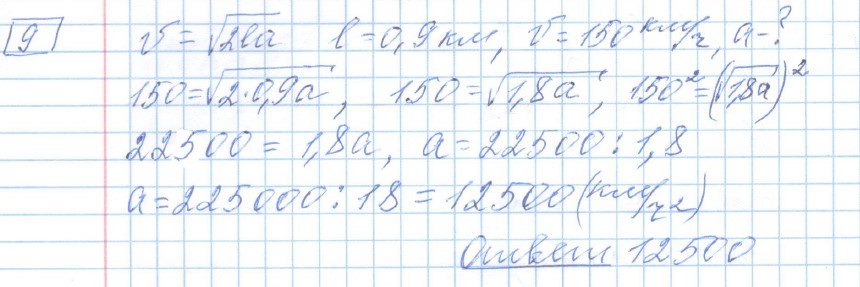 9 v = √2la l = 0,9 км, v = 150 км/ч, a - ?
150 = √2·0,9a, 150 = √1,8a, 150² = (√1,8a)²
22500 = 1,8a, a = 22500 : 1,8
a = 225000 : 18 = 12500 (км/ч2)
Ответ 12500